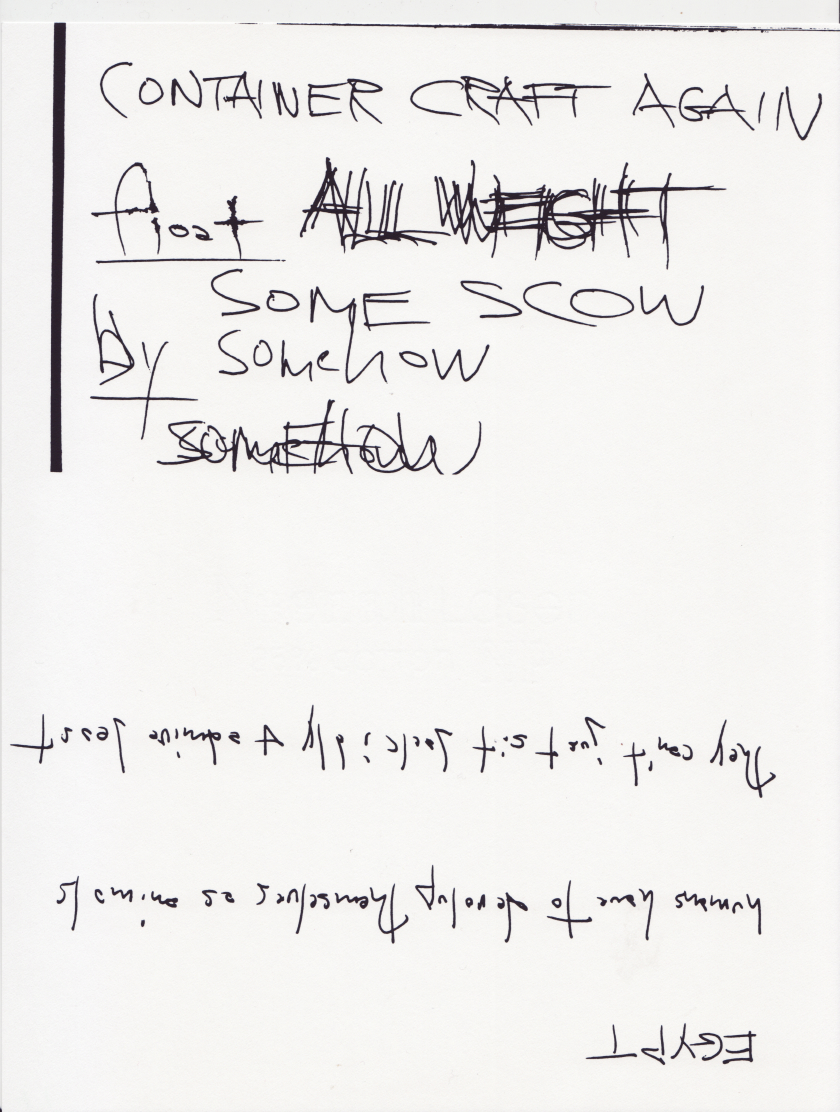 CONTAINER CRAFT AGAIN
float ALL WEIGHT
SOME SCOW
by SOMEHOW
SOMEHOW
EGYPT
humans have to develop themselves as animals
They can't just sit & admire